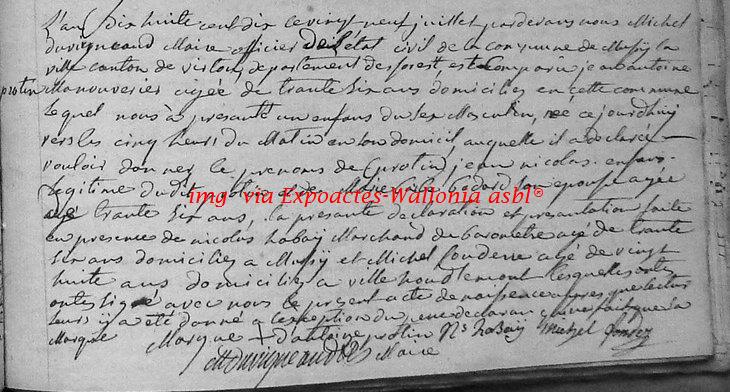 L'an dix huite cent dix ce vingt neuf juillet par devans nous Michel
Duvigneaud Maire officier De l'état civil de la commune de Mussÿ la
ville canton de virton, departement des forest, est Comparu jean antoine
protin Manouverier agée de trante six ans domiciliez en cette commune
lequel nous à presanté un enfans du sex Masculin, née ce jourdhuy
vers les cinq heurs du Matin en son domicil, auquelle il a declarée
vouloir donner le prenoms de (protin) jean nicolas. enfans.
Legitime dudit godard son epouse agée
de trante six ans, la presante declaration et presantation faite
en presence de nicolas habaÿ Marchand de baromètre agé de trante
six ans domiciliez a Mussÿ et Michel agé de vingt
huite ans domiciliez a ville houdlemont lesquelles
ont signé avec nous le present acte de naissence apres que lecture
leurs ÿ a été donné a l'exception du declarant qui a fait que sa
Marque Marque + d'antoine protin Ns habaÿ Michel
Duvigneaud Maire
img via Expoactes-Wallonia asbl®